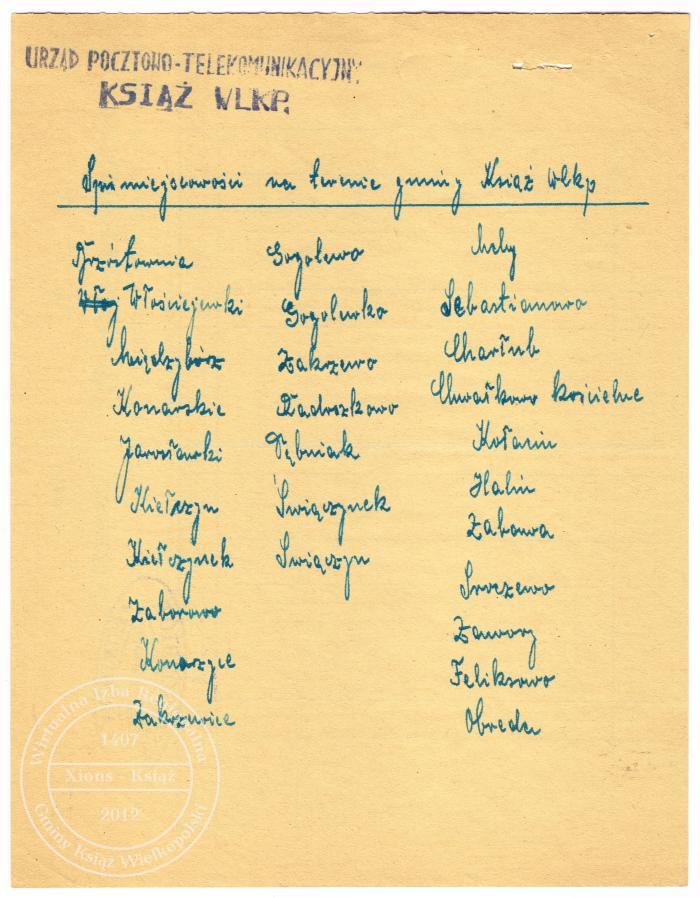 URZĄD POCZTOWO-TELEKOMUNIKACYJNY
KSIĄŻ WLKP.
Spis miejscowości na terenie gminy Książ Wlkp
Brzóstownia
Włoj Włościejewki
Międzybórz
Konarskie
Jarosławki
Kiełczyn
Kiełczynek
Zaborowo
Konarzyce
Zakrzewice
Gogolewo
Gogolewko
Zakrzewo
Radoszkowo
Dębniak
Świączynek
Świączyn
Mchy
Sebastianowo
Charłub
Chwałkowo kościelne
Kołacin
Halin
Zabawa
Sroczewo
Zawory
Feliksowo
Obreda
Wirtualna Izba Regionalna
1407
Xions - Książ
2012
Gminy Książ Wielkopolski